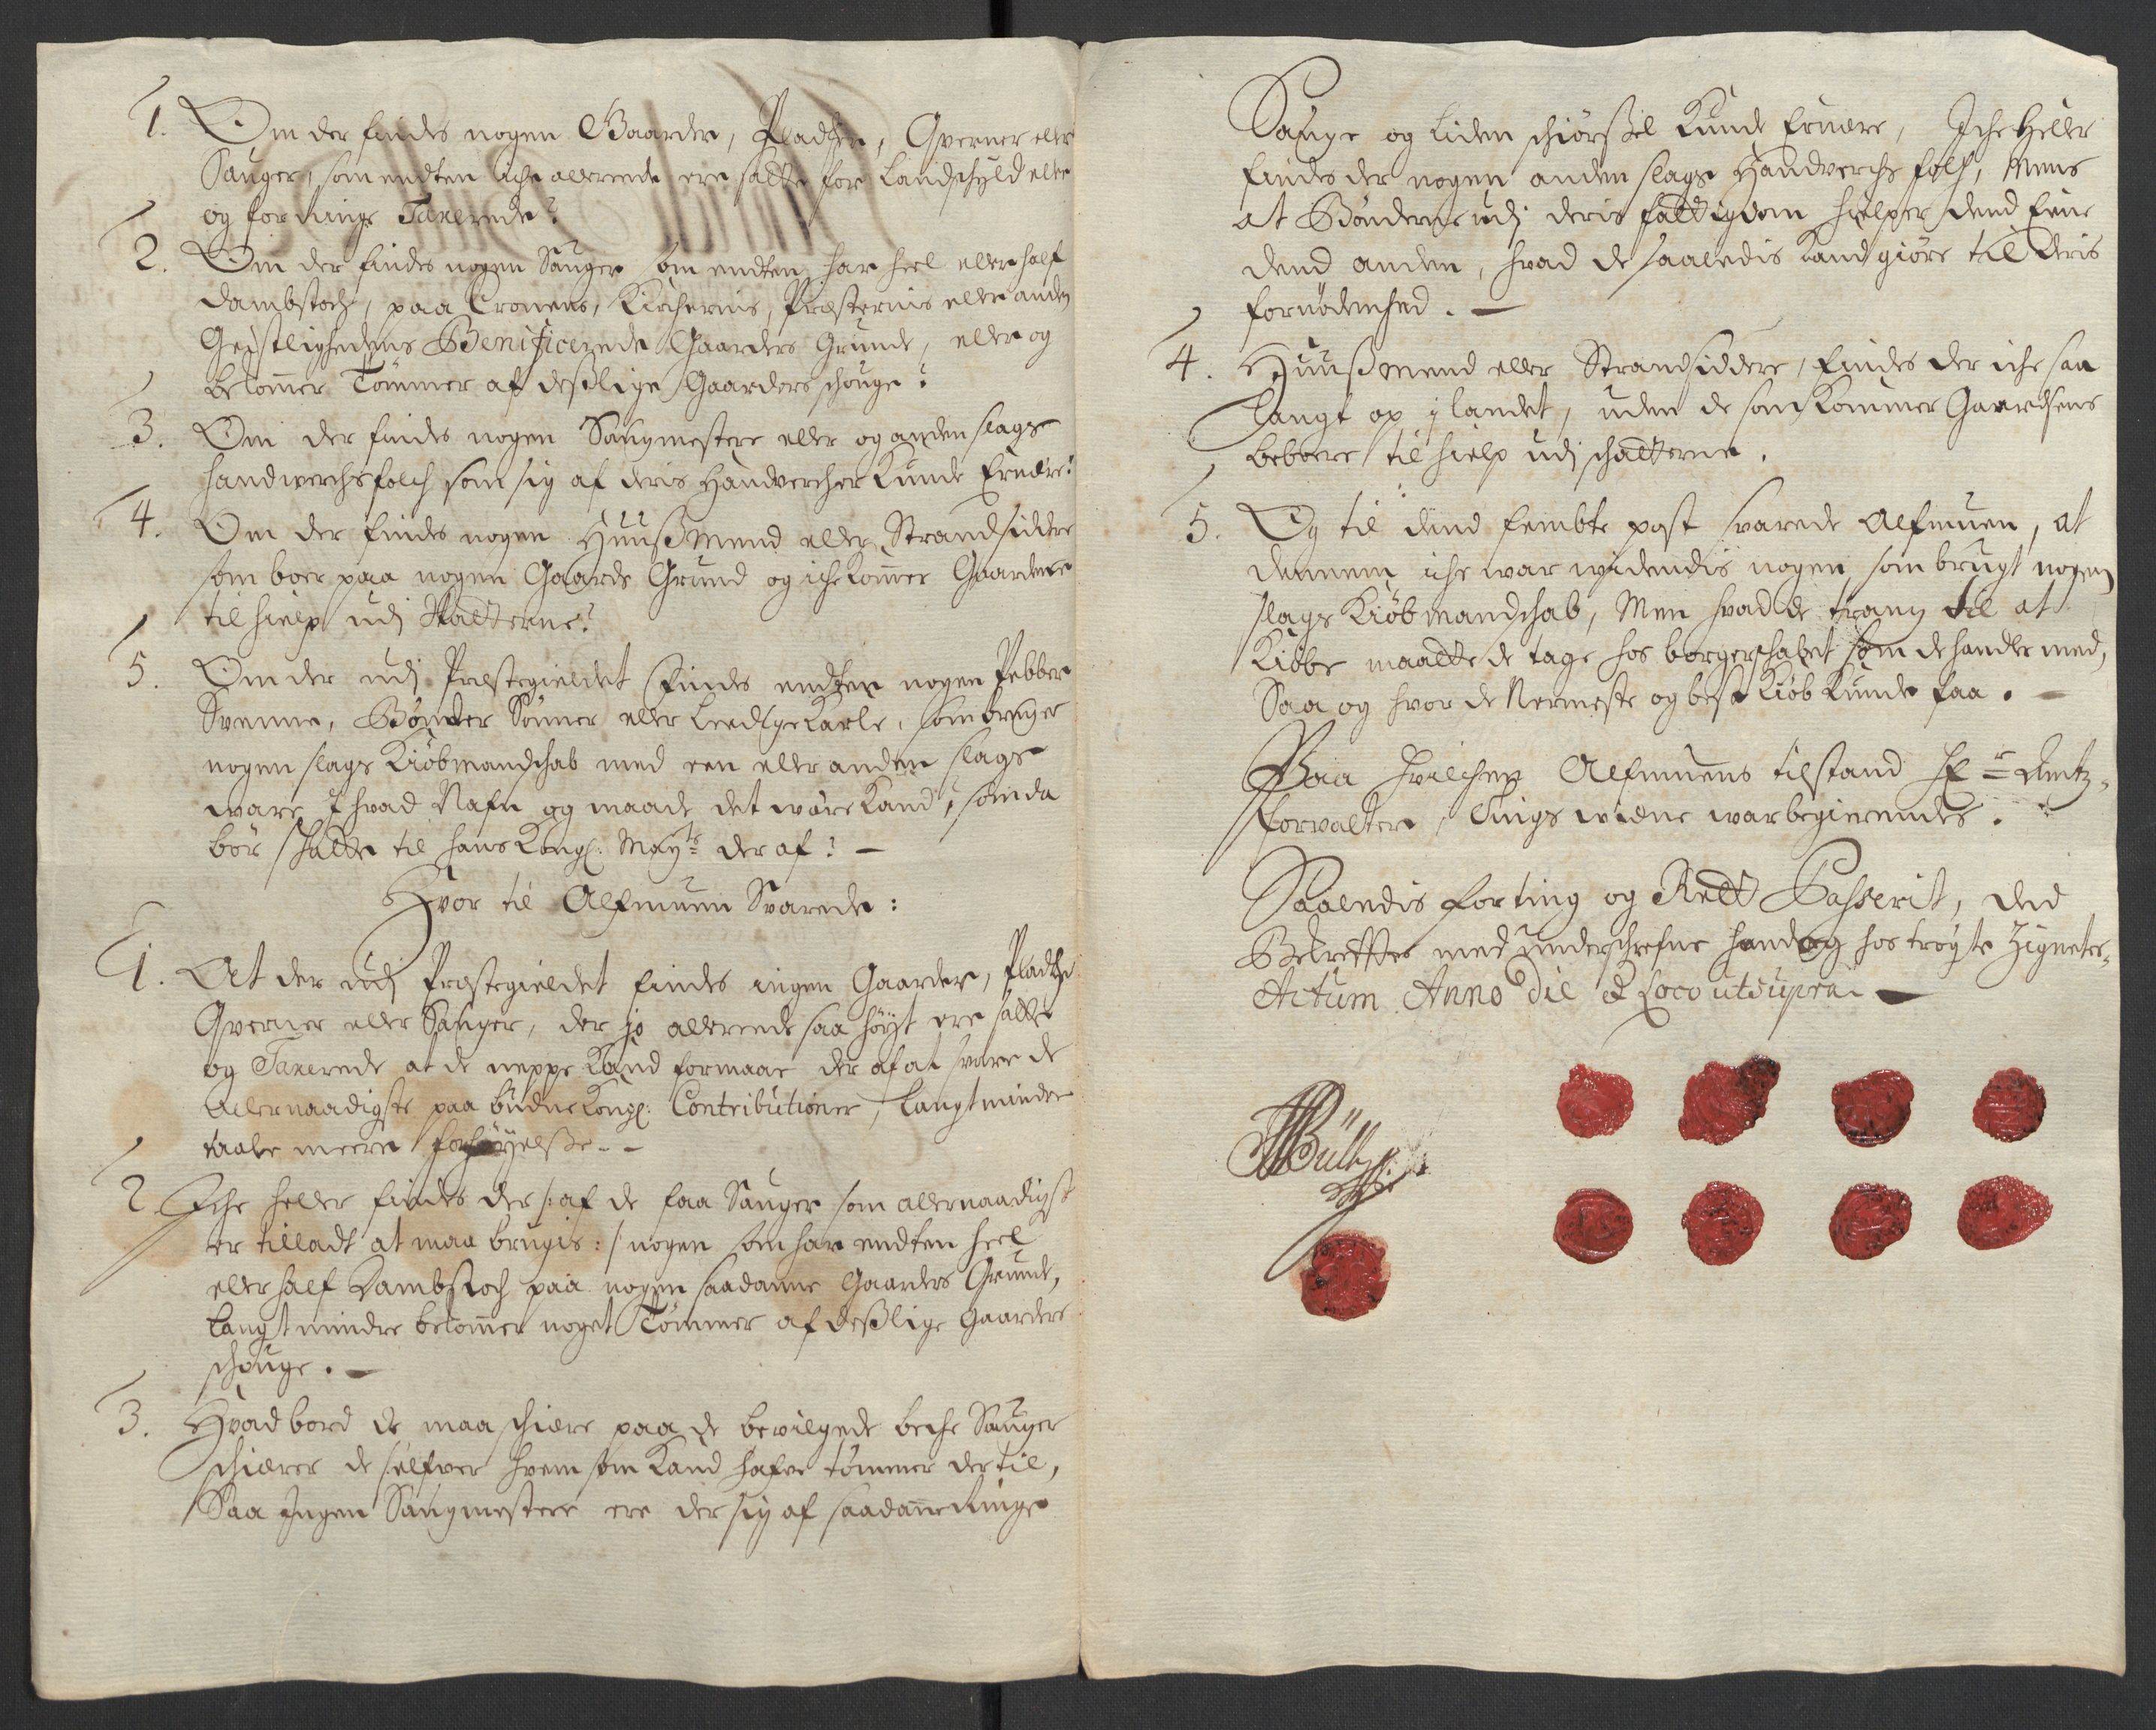 1. Om der findes nogen Gaarder, Pladtzer, Qverner eller
Sauger, som endten iche allereede ere satte for Landschyld eller
og for ringe Taxerede?
2. Om der findes nogen Sauger som endten har heel eller half
dambstoch, paa Cronens, Kirchernis, Præsternis eller anden
Geistlighedens Beneficerede Gaarders Grunde, eller og
bekommer Tømmer af desslige Gaarders schouge?
3. Om der findes nogen Saugmestere eller og anden slags
handwerchsfolch som sig af deris Handwercher kunde Ernære?
4. Om der findes nogen Huussmend eller Strandsiddere
som boer paa nogen Gaards Grund og iche kommer Gaardene
til hielp udj Skatterne?
5. Om der udj Præstegieldet findes endten nogen Pebber
Svenne, Bønder Sønner eller Leedige karle, som bruger
nogen slags Kiøbmandschab med een eller anden slags
ware I hvad Nafn og maade det være kand, som da
bør schatte til hans Kongl: Mayts der af? —
Hvor til Alfmuen Svarede:
1. At der udj Præstegieldet findes ingen Gaarder, Pladtzer
Qverner eller Sauger, der jo allereede saa høyt ere satte
og Taxerede at de neppe kand formaae der af at svare de
Allernaadigste paa budne Kongl: Contributioner, langt mindre
taale meere forhøyelsse. -
2. Iche heller findes der /: af de faa Sauger som allernaadigst
er tilladt at maa brugis :/ nogen som har endten heel
eller half Dambstoch paa nogen saadanne Gaarders Grunde,
langt mindre bekommer noget Tømmer af desslige Gaarders
schouge. —
3. Hvad bord de maa schiære paa de bewilgede beche Sauger
schiærer de self hvem som kand hafve tømmer der til,
Saa Ingen Saugmestere ere der sig af saadanne ringe
Sauge og liden schiørssel kunde Ernære, Iche heller
findes der nogen anden slags Handverchs folch, Mens
at Bønderne udj deris fattigdom hielper dend Eene
dend anden, hvad de saaledis kand giøre til deris
fornødenhed. —
4. Huussmend eller Strandsiddere, findes der iche saa
langt op j landet, uden de som kommer Gaardsens
beboere til hielp udj schatterne.
5. Og til dend fembte post svarede Alfmuen, at
dennem iche war widendis nogen som brugt nogen
slags Kiøbmandschab, Men hvad de trang til at
Kiøbe maatte de tage hos borgerschabet som de handler med,
Saa og hvor de Nermeste og best Kiøb kunde faa. —
Paa hvilchen Alfmuens tilstand Hr Amtz-
forvalter, Tings widne war begierendes.
Saaledis for ting og Rett Passerit, Did
Bekreftes med underschrefne haand og hos trøgte Zigneter.
Actum Anno Die & Loco ut supra. —